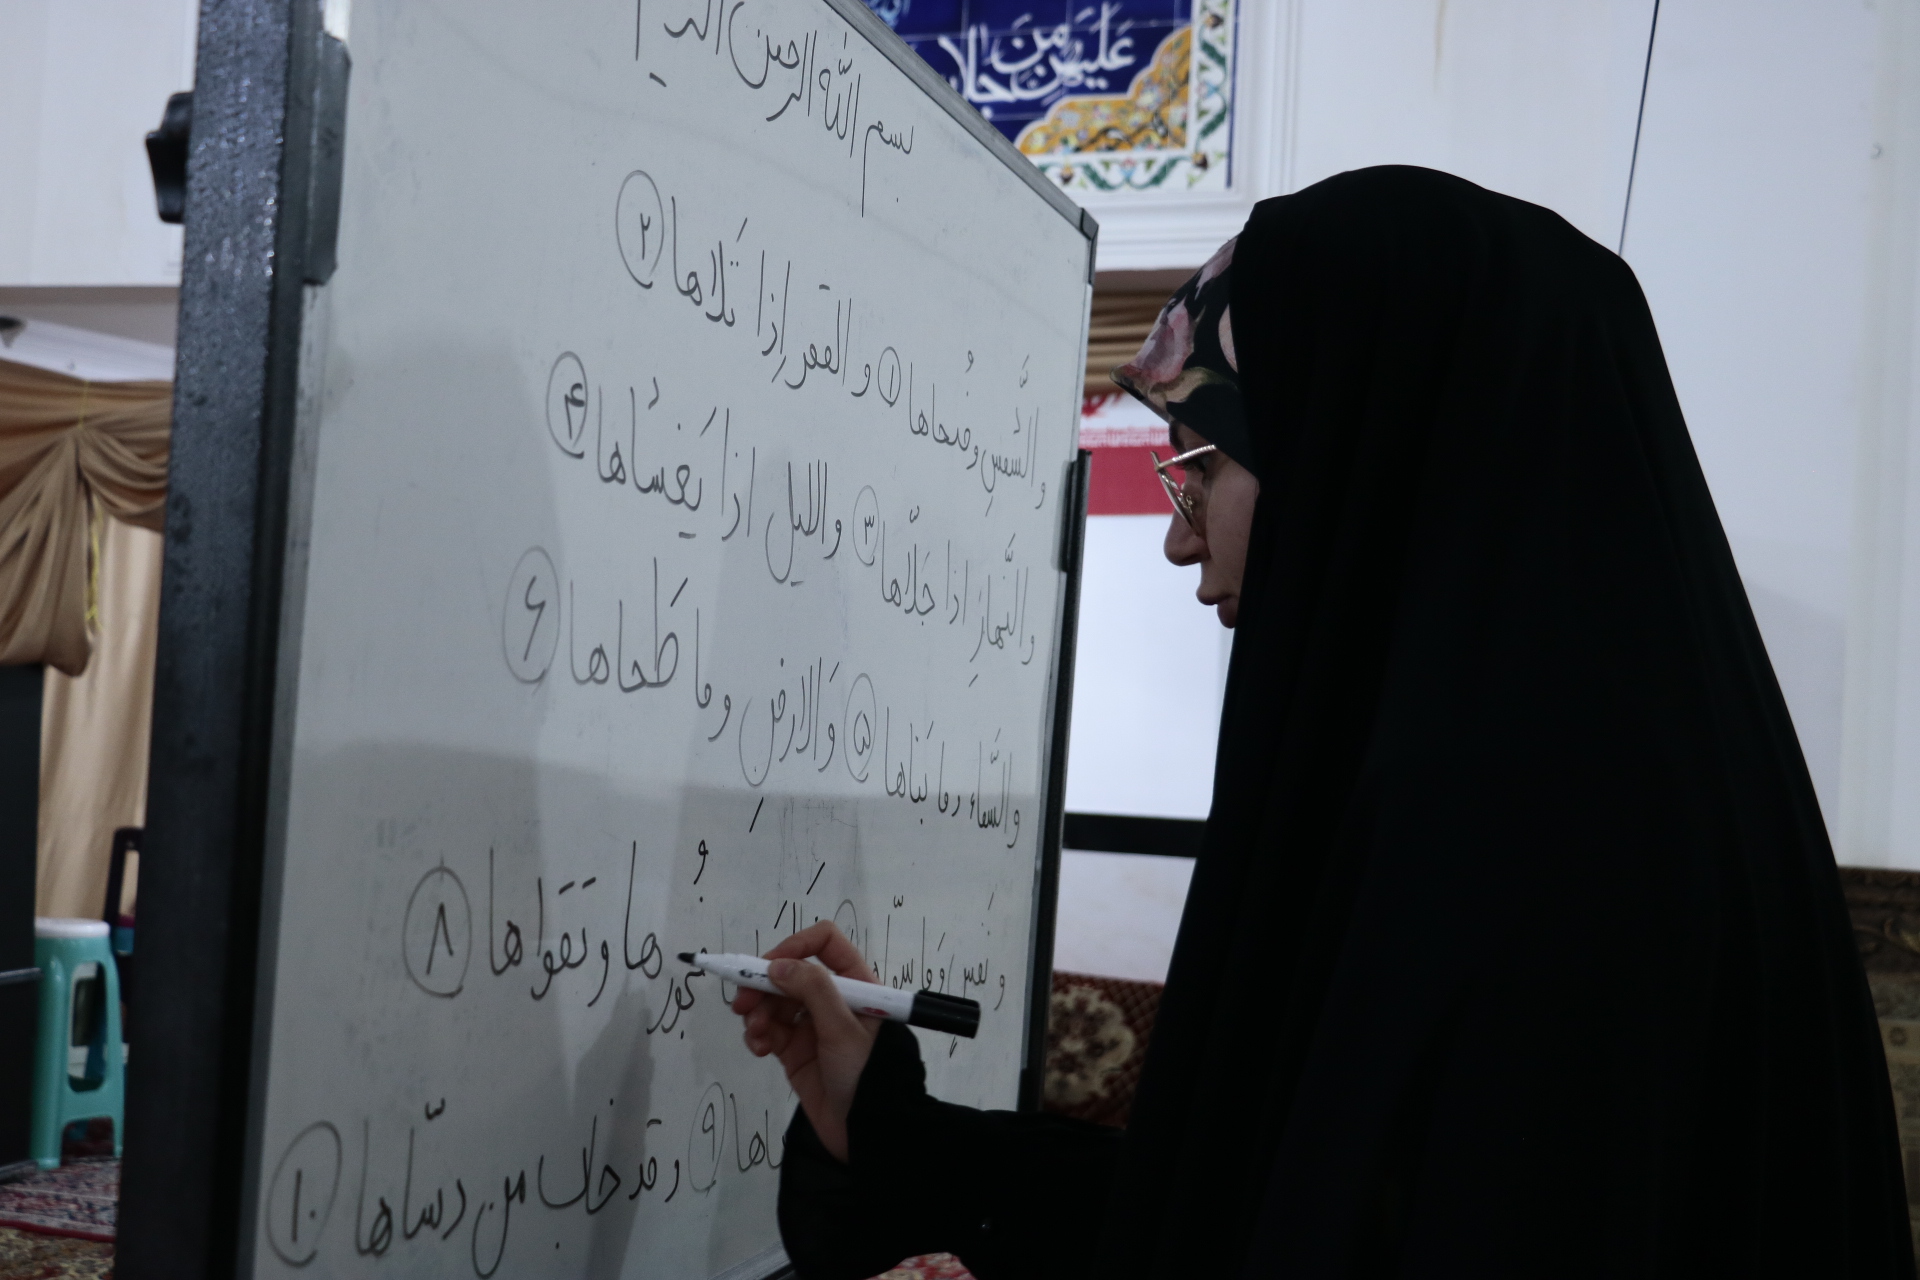 عَلَيْهِنَّ مِن
بسم الله الرحمن الر
والشَّمسِ وضُحاها ۱ و القَمَر إِذا تَلاها ۲
والنَّهارِ اذا جَلّاها ۳ واللیل اذا یَغشاها ۴
والسَّماء وما بَناها ۵ وَالارضِ وما طَحاها ۶
و نَفسٍ وَما سوّاها فُجورها و تَقواها ۸
۹ و قد خاب من دسّاها ۱۰